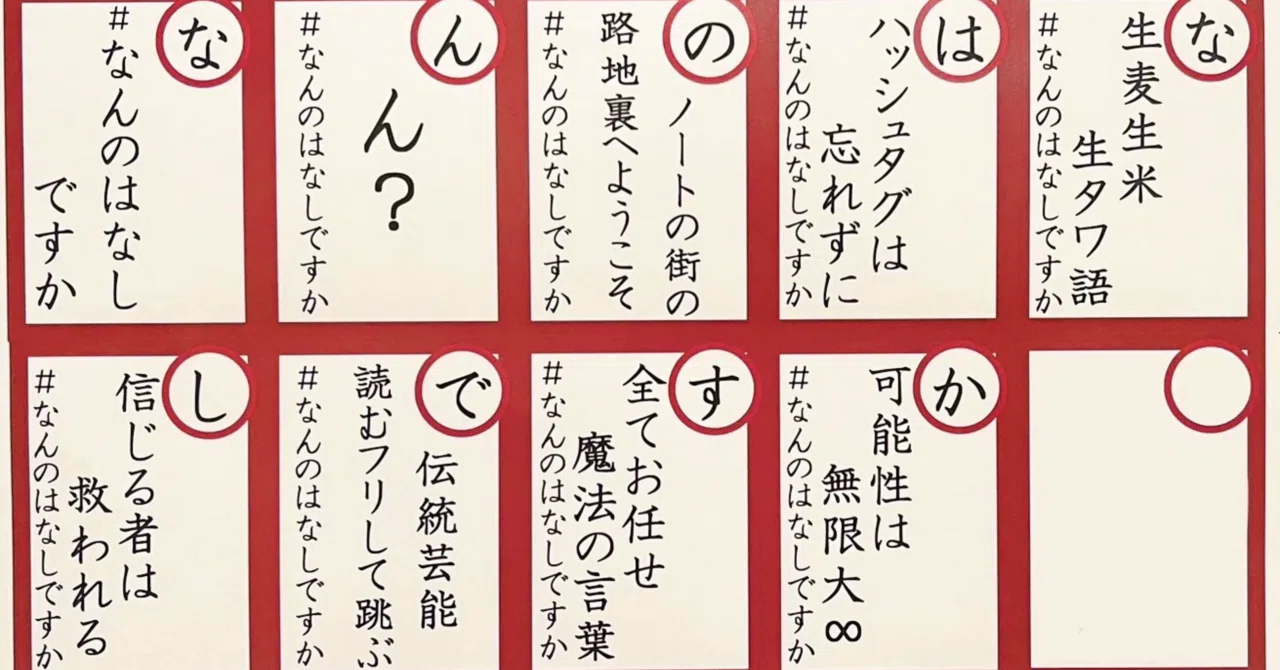 な
#なんのはなし
ですか
ん
ん?
#なんのはなしですか
の
ノートの街の
路地裏へようこそ
#なんのはなしですか
は
ハッシュタグは
忘れずに
#なんのはなしですか
な
生麦生米
生タワ語
#なんのはなしですか
し
信じる者は
救われる
#なんのはなしですか
で
伝統芸能
読むフリして跳ぶ
#なんのはなしですか
す
全てお任せ
魔法の言葉
#なんのはなしですか
か
可能性は
無限大∞
#なんのはなしですか